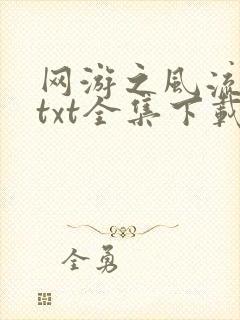 网游之风流
txt全集下载
全勇